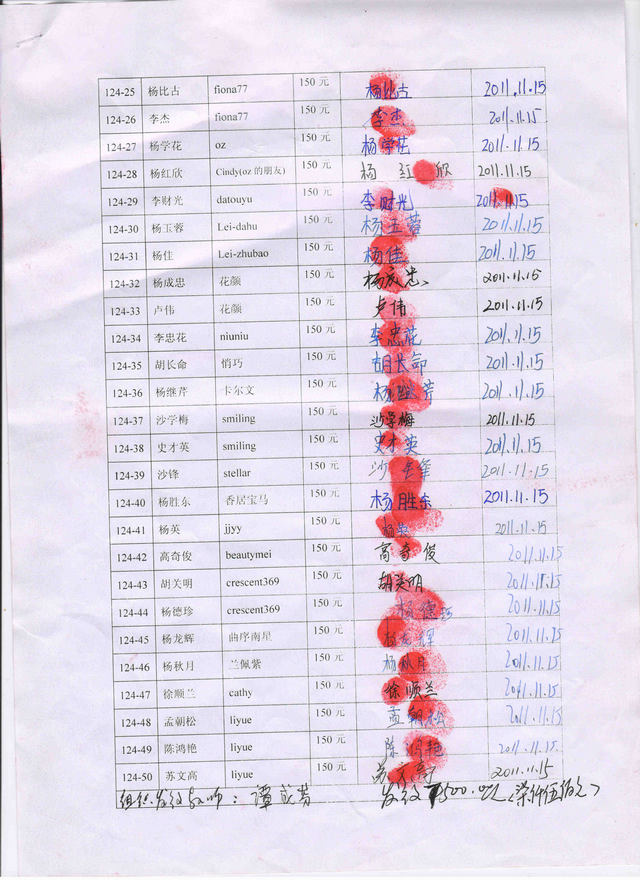 124-25 杨比古 fiona77 150 元 杨比古 2011.11.15
124-26 李杰 fiona77 150 元 李杰 2011.11.15
124-27 杨学花 oz 150 元 杨学花 2011.11.15
124-28 杨红欣 Cindy(oz 的朋友) 150 元 杨红欣 2011.11.15
124-29 李财光 datouyu 150 元 李财光 2011.11.15
124-30 杨玉蓉 Lei-dahu 150 元 杨玉蓉 2011.11.15
124-31 杨佳 Lei-zhubao 150 元 杨佳 2011.11.15
124-32 杨成忠 花颜 150 元 杨成忠 2011.11.15
124-33 卢伟 花颜 150 元 卢伟 2011.11.15
124-34 李忠花 niuniu 150 元 李忠花 2011.11.15
124-35 胡长命 悄巧 150 元 胡长命 2011.11.15
124-36 杨继芹 卡尔文 150 元 杨继芹 2011.11.15
124-37 沙学梅 smiling 150 元 沙学梅 2011.11.15
124-38 史才英 smiling 150 元 史才英 2011.11.15
124-39 沙锋 stellar 150 元 沙锋 2011.11.15
124-40 杨胜东 香居宝马 150 元 杨胜东 2011.11.15
124-41 杨英 jjyy 150 元 杨英 2011.11.15
124-42 高奇俊 beautymei 150 元 高奇俊 2011.11.15
124-43 胡关明 crescent369 150 元 胡关明 2011.11.15
124-44 杨德珍 crescent369 150 元 杨德珍 2011.11.15
124-45 杨龙辉 曲序南星 150 元 杨龙辉 2011.11.15
124-46 杨秋月 兰佩紫 150 元 杨秋月 2011.11.15
124-47 徐顺兰 cathy 150 元 徐顺兰 2011.11.15
124-48 孟朝松 liyue 150 元 孟朝松 2011.11.15
124-49 陈鸿艳 liyue 150 元 陈鸿艳 2011.11.15
124-50 苏文高 liyue 150 元 苏文高 2011.11.15
组织发放教师：谭成芬 发放 7500.00元（柒仟伍佰元）